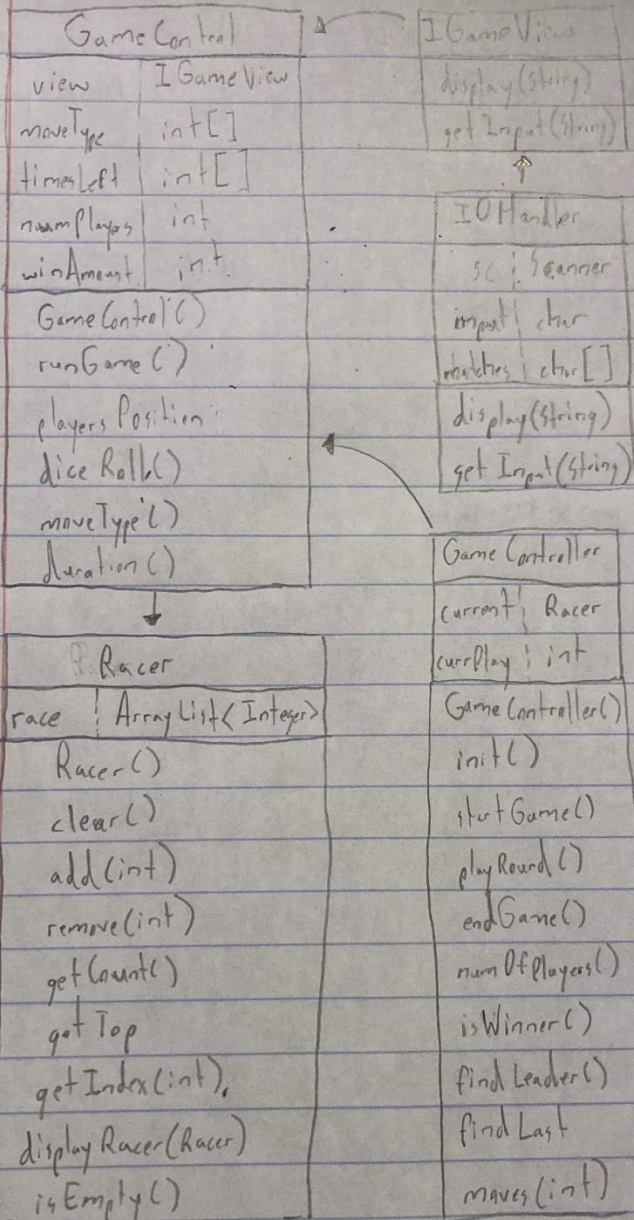 GameControl
view IGameView
moveType int[]
timesLeft int[]
numPlayers int
winAmount int
GameControl()
runGame()
playersPosition
diceRoll()
moveType()
duration()
Racer
race ArrayList<Integer>
Racer()
clear()
add(int)
remove(int)
getCount()
getTop
getIndex(int)
displayRacer(Racer)
isEmpty()
IGameView
display(String)
getInput(String)
IOHandler
sc Scanner
input char
matches char[]
display(String)
getInput(String)
GameController
current Racer
currPlay int
GameController()
init()
startGame()
playRound()
endGame()
numOfPlayers()
isWinner()
findLeader()
findLast
moves(int)